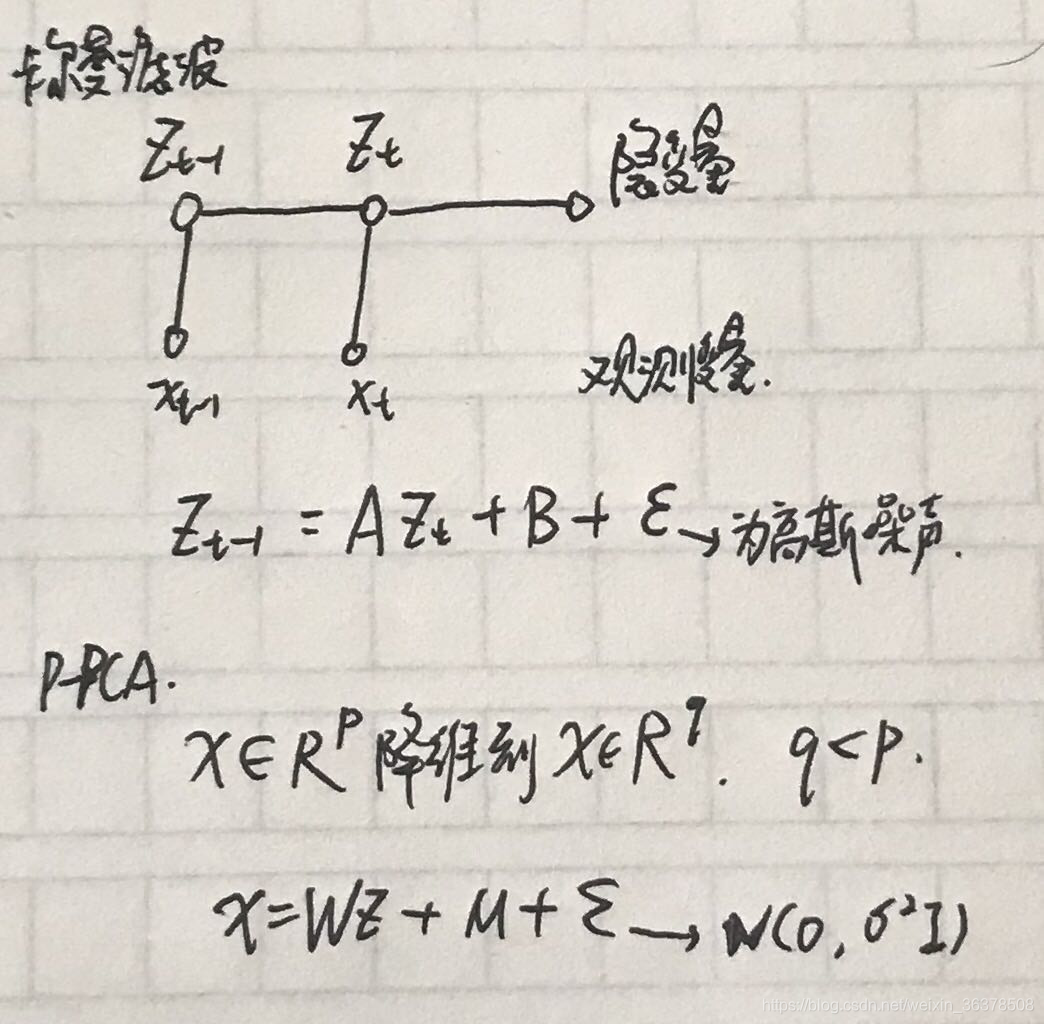 卡尔曼滤波
Z_{t-1} Z_t 隐变量
x_{t-1} x_t 观测变量.
Z_{t-1} = A Z_t + B + ε → 为高斯噪声.
P-PCA.
x ∈ R^P 降维到 x ∈ R^q. q < p.
x = WZ + μ + ε → N(0, σ²I)
https://blog.csdn.net/weixin_36378508